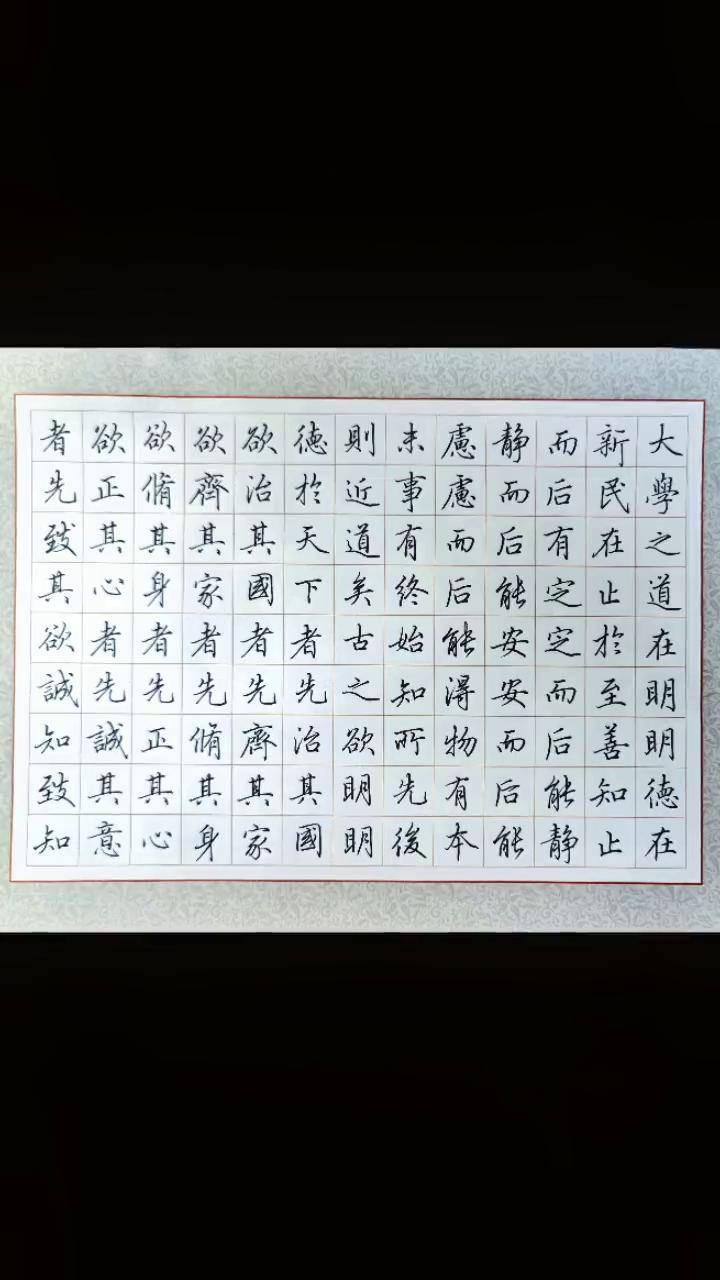 大學之道在明明德在
新民在止於至善知止
而后有定定而后能静
静而后能安安而后能
慮慮而后能得物有本
末事有終始知所先後
則近道矣古之欲明明
德於天下者先治其國
欲治其國者先齊其家
欲齊其家者先脩其身
欲脩其身者先正其心
欲正其心者先誠其意
者先致其欲誠知致知